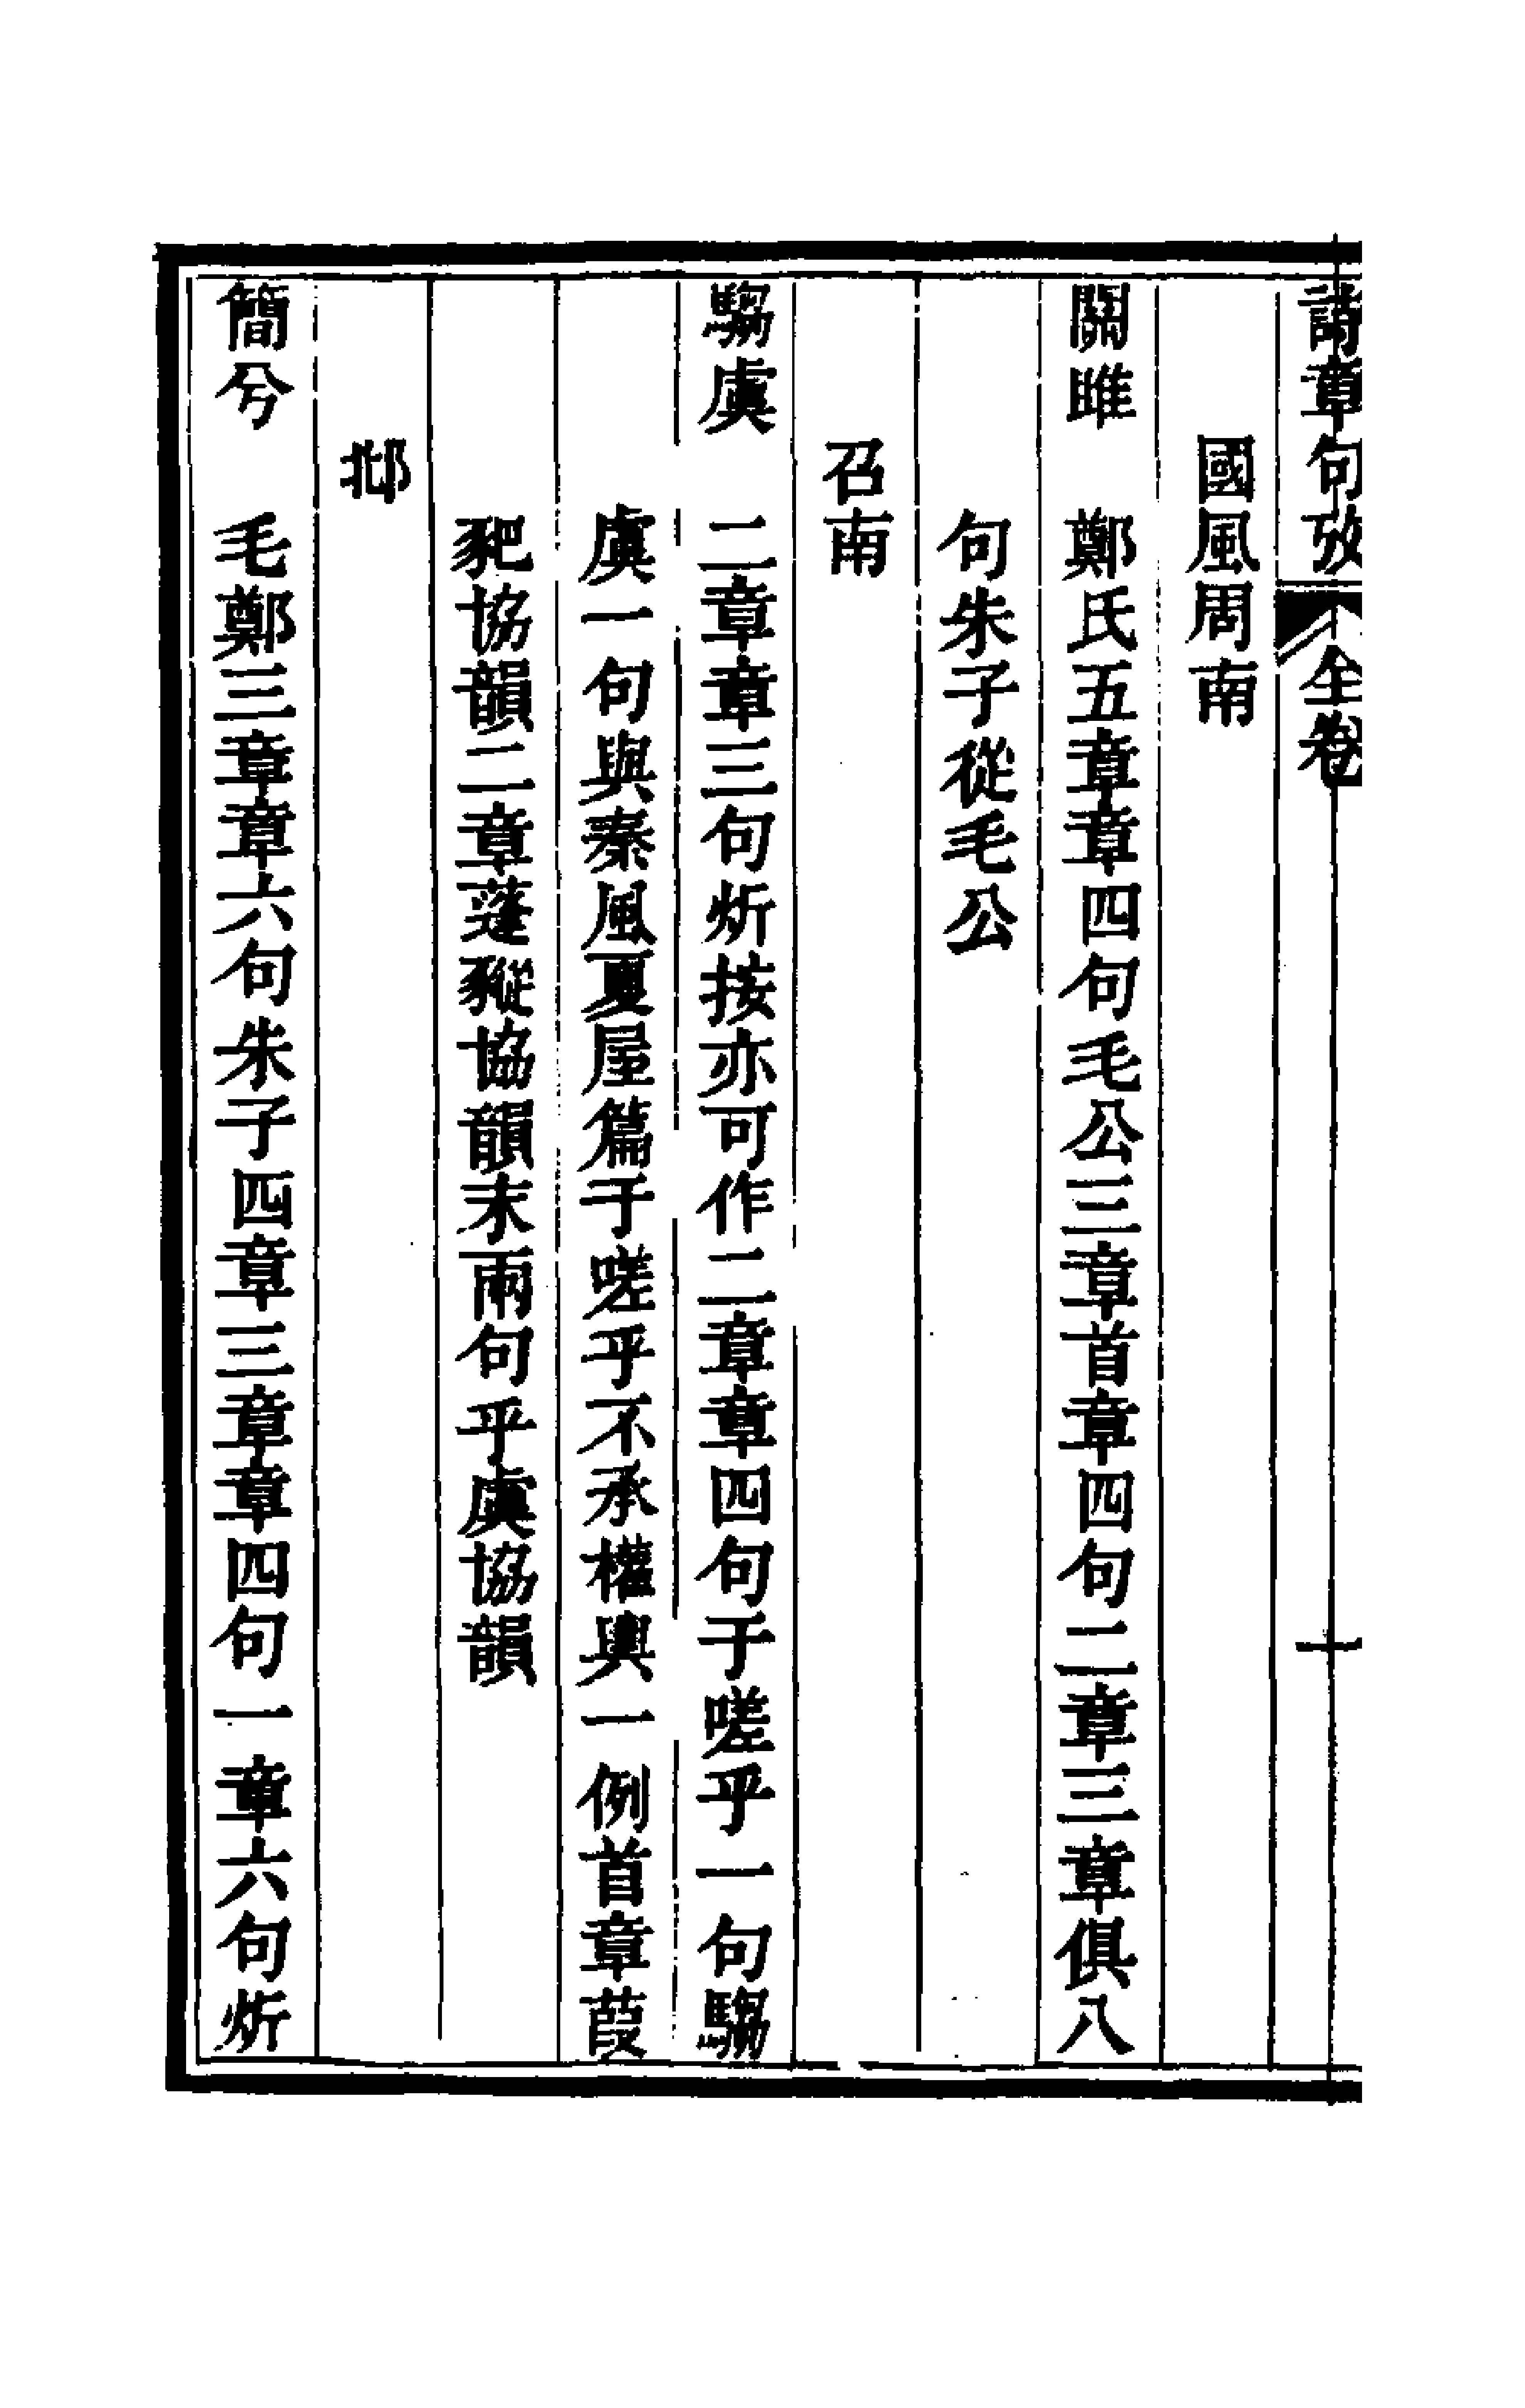 詩章句攷 全卷 十
國風周南
關雎 鄭氏五章章四句毛公三章首章四句二章三章俱八
句朱子從毛公
召南
騶虞 二章章三句炘按亦可作二章章四句于嗟乎一句騶
虞一句與秦風夏屋篇于嗟乎不承權輿一例首章葭
豝協韻二章蓬豵協韻末兩句乎虞協韻
邶
簡兮 毛鄭三章章六句朱子四章三章章四句一章六句炘